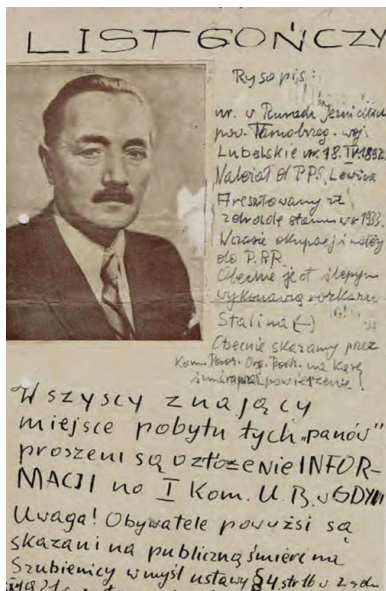 LIST GOŃCZY
Rysopis:
ur. w
pow. Tarnobrzeg. woj.
Lubelskie ur. 18. IV. 1892
Należał do PPS, Lewica
Aresztowany za
zdradę stanu w r 1933.
W czasie okupacji
do P.P.R.
Obecnie jest ślepym
wykonawcą rozkazu
Stalina (-)
Obecnie skazany przez
Kom. Org. na karę
śmierci przez powieszenie!
Wszyscy znający
miejsce pobytu tych „panów"
proszeni są o złożenie INFOR-
MACJI na I Kom. U.B. w GDYNI
Uwaga! Obywatele powyżsi są
skazani na publiczną śmierć na
Szubienicy w myśl ustawy § 4 str 16